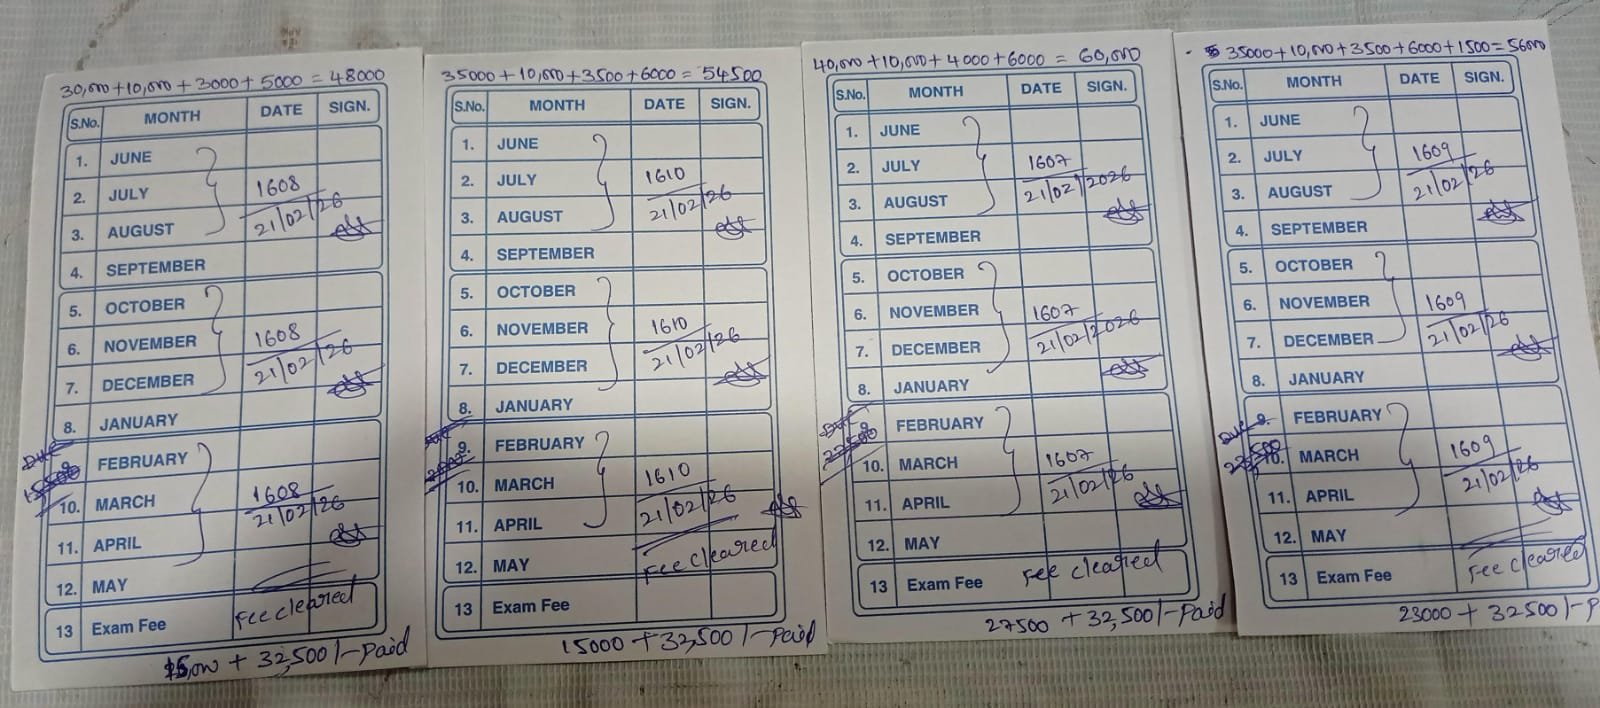 30,000+10,000+3000+5000=48000
S.No. MONTH DATE SIGN.
1. JUNE
2. JULY 1608
3. AUGUST 21/02/26
4. SEPTEMBER
5. OCTOBER
6. NOVEMBER 1608
7. DECEMBER 21/02/26
8. JANUARY
Due
FEBRUARY
10. MARCH 1608
21/02/26
11. APRIL
12. MAY
13 Exam Fee Fee cleared
15,000 + 32,500/- Paid
35000+10,000+3500+6000=54500
S.No. MONTH DATE SIGN.
1. JUNE
2. JULY 1610
3. AUGUST 21/02/26
4. SEPTEMBER
5. OCTOBER
6. NOVEMBER 1610
7. DECEMBER 21/02/26
8. JANUARY
9. FEBRUARY
10. MARCH 1610
11. APRIL 21/02/26
12. MAY Fee cleared
13 Exam Fee
15000+32,500/- Paid
40,000+10,000+4000+6000=60,000
S.No. MONTH DATE SIGN.
1. JUNE
2. JULY 1607
3. AUGUST 21/02/2026
4. SEPTEMBER
5. OCTOBER
6. NOVEMBER 1607
7. DECEMBER 21/02/2026
8. JANUARY
Due
FEBRUARY
27,500
10. MARCH 1607
11. APRIL 21/02/26
12. MAY
13 Exam Fee Fee cleared
27500 + 32,500/- Paid
35000+10,000+3500+6000+1500=56000
S.No. MONTH DATE SIGN.
1. JUNE
2. JULY 1609
3. AUGUST 21/02/26
4. SEPTEMBER
5. OCTOBER
6. NOVEMBER 1609
7. DECEMBER 21/02/26
8. JANUARY
Due 9. FEBRUARY
10. MARCH 1609
21/02/26
11. APRIL
12. MAY
13 Exam Fee Fee cleared
23000 + 32500/- P